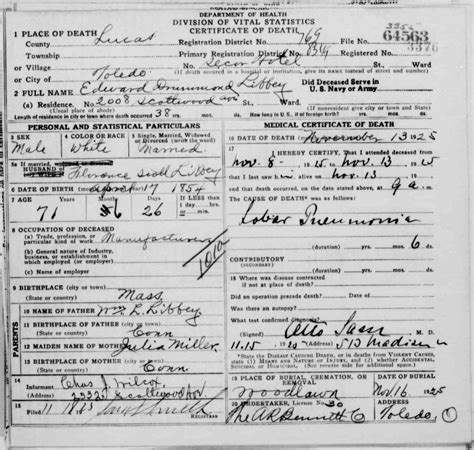 DEPARTMENT OF HEALTH
DIVISION OF VITAL STATISTICS
CERTIFICATE OF DEATH
1 PLACE OF DEATH
County Lucas
Registration District No. 769
64563
3376
Township
Primary Registration District No.
Registered No.
or Village
No. Secor Hotel St., Ward
or City of Toledo
(If death occurred in a hospital or institution, give its NAME instead of street and number)
2 FULL NAME Edward Drummond Libbey
Did Deceased Serve in U. S. Navy or Army
(a) Residence. No. 2008 Scottwood Ave St., Ward
(Usual place of abode)
(If nonresident give city or town and State)
Length of residence in city or town where death occurred 38 yrs. mos. ds.
How long in U. S., if of foreign birth? yrs. mos. ds.
PERSONAL AND STATISTICAL PARTICULARS
3 SEX
Male
4 COLOR OR RACE
White
5 Single, Married, Widowed or Divorced
Married
5a If married,
HUSBAND of
Florence Scott Libbey
6 DATE OF BIRTH April 17 1854
7 AGE
71 6 26
If LESS than 1 day
8 OCCUPATION OF DECEASED
(a) Trade, profession, or particular kind of work Manufacturer
(b) General nature of Industry, business, or establishment in which employed (or employer)
(c) Name of employer
9 BIRTHPLACE (city or town)
(State or country) Mass
PARENTS
10 NAME OF FATHER Wm L. Libbey
11 BIRTHPLACE OF FATHER (city or town)
(State or country) Conn
12 MAIDEN NAME OF MOTHER Julia Miller
13 BIRTHPLACE OF MOTHER (city or town)
(State or country) Conn
14 Chas J. Wilcox
Scottwood Av
15
MEDICAL CERTIFICATE OF DEATH
16 DATE OF DEATH November 13 1925
17 I HEREBY CERTIFY, That I attended deceased from
Nov. 8 1925 to Nov. 13 1925
that I last saw h alive on Nov. 13 1925
and that death occurred, on the date stated above, at 9 a m.
The CAUSE OF DEATH* was as follows:
Lobar Pneumonia
(duration) yrs. mos. 6 ds.
CONTRIBUTORY
(SECONDARY)
(duration) yrs. mos. ds.
18 Where was disease contracted
if not at place of death?
Did an operation precede death? Date of
Was there an autopsy?
What test confirmed diagnosis?
(Signed) M. D.
11.15 1925 513 Madison
*State the DISEASE CAUSING DEATH, or in deaths from VIOLENT CAUSES, state (1) MEANS AND NATURE OF INJURY, and (2) whether ACCIDENTAL, SUICIDAL or HOMICIDAL.
19 PLACE OF BURIAL, CREMATION, OR REMOVAL
Woodlawn
DATE OF BURIAL
Nov 16 1925
20 UNDERTAKER, License No.
Toledo, O